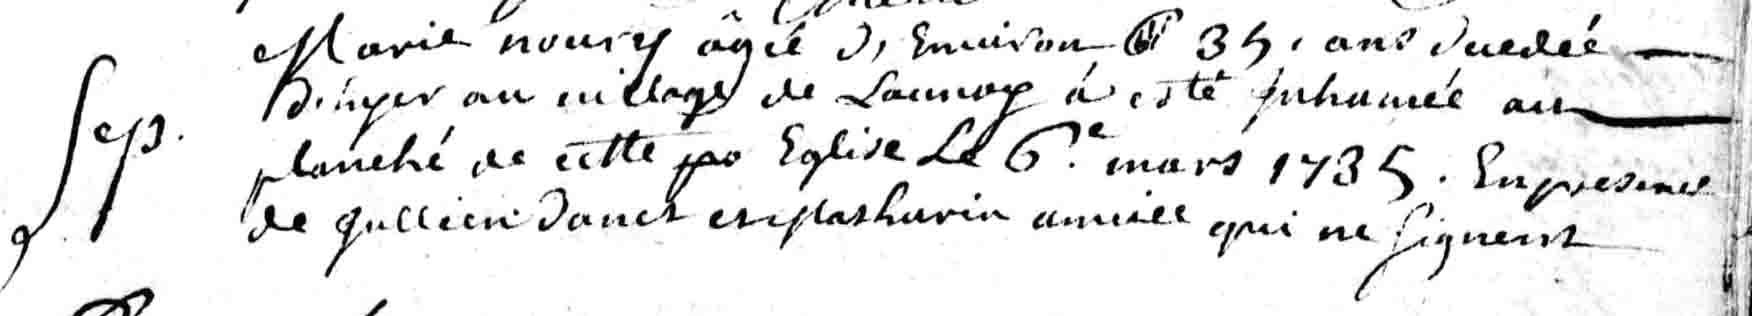 Marie noury âgée d, Environ 35. ans decedée
d'hyer au village de Launay a esté Inhumée au
Sep.
planché de cette po Eglise Le 6.e mars 1735. En presence
de Jullien danet et Mathurin qui ne signent